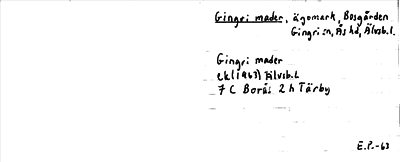 Gingri mader, ägomark, Bosgården
Gingri sn, Ås hd, Älvsb.l.
Gingri mader
Ek (1963) Älvsb.L
7 C Borås 2 h Tärby
E.P.-63